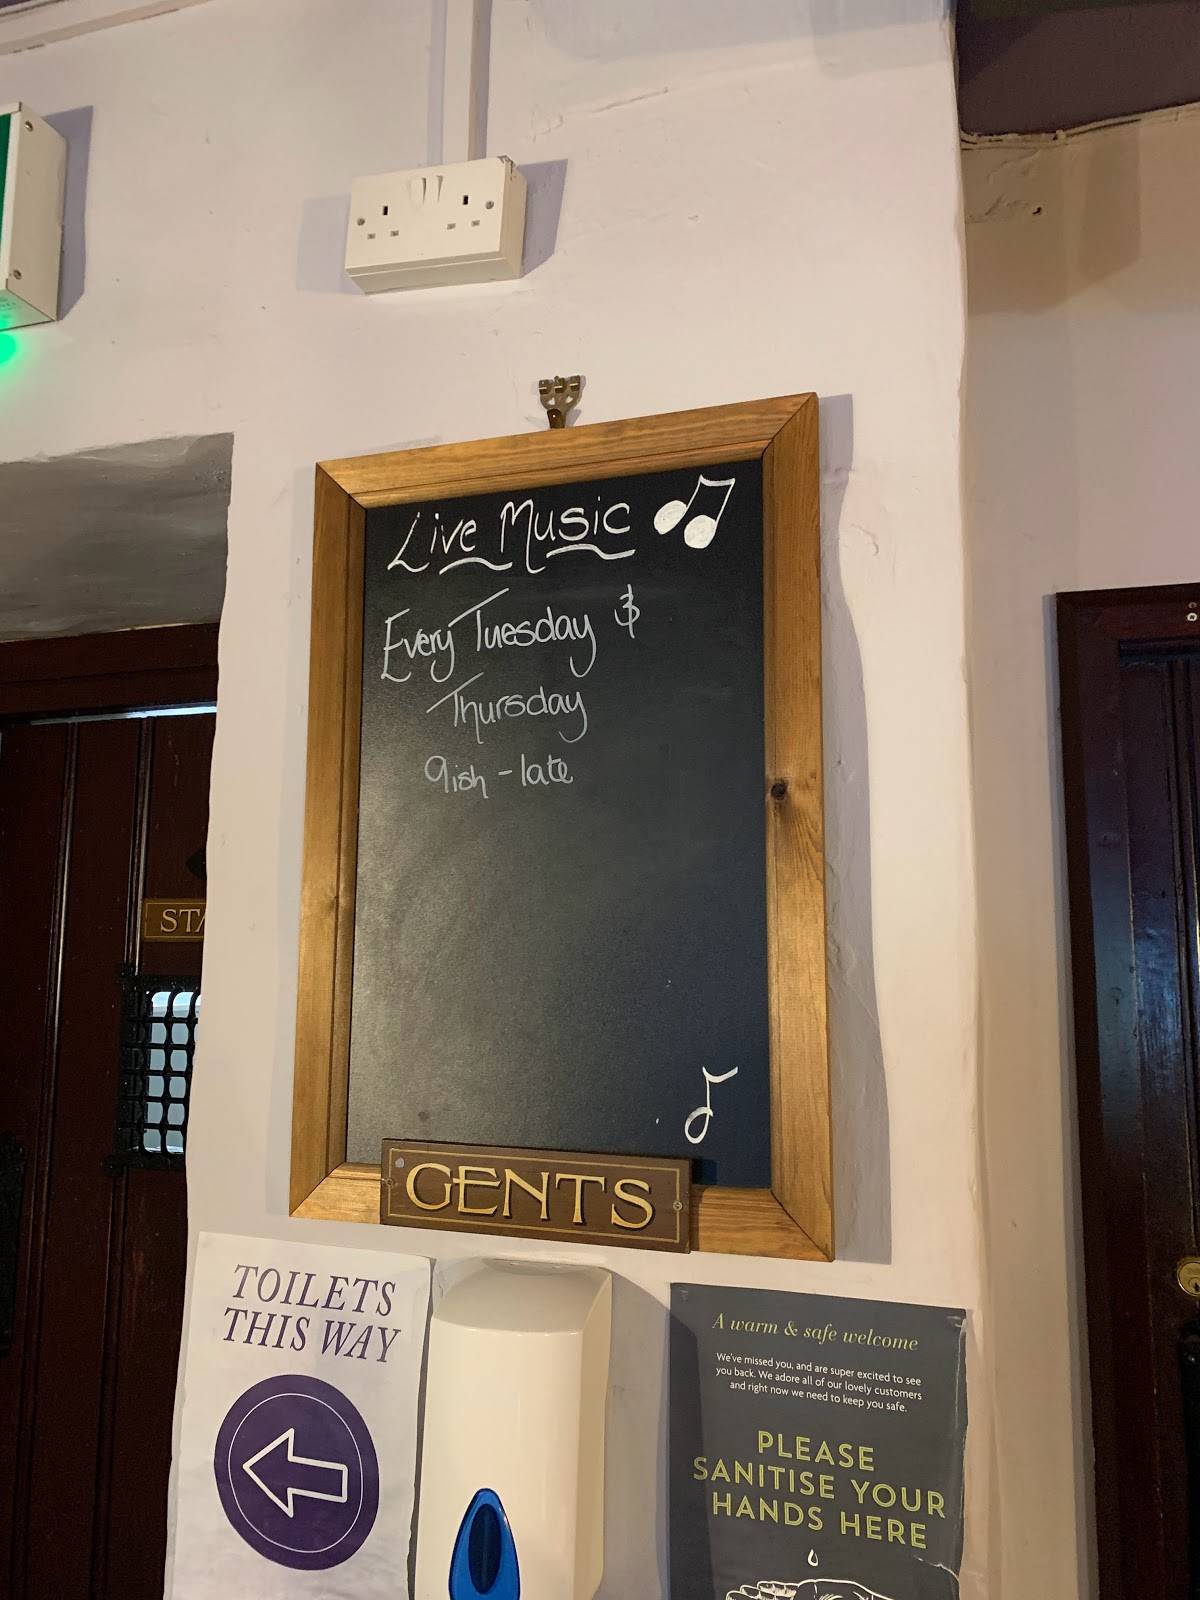 Live Music
Every Tuesday &
Thursday
9ish - late
STA
GENTS
TOILETS
THIS WAY
A warm & safe welcome
We've missed you, and are super excited to see
you back. We adore all of our lovely customers
and right now we need to keep you safe.
PLEASE
SANITISE YOUR
HANDS HERE